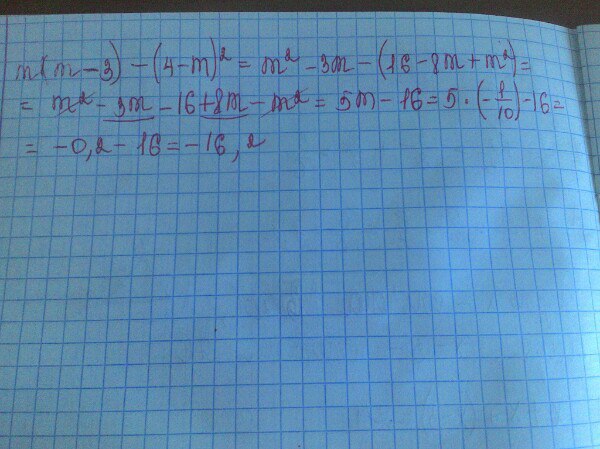 m(m-3) - (4-m)² = m² - 3m - (16 - 8m + m²) =
= m² - 3m - 16 + 8m - m² = 5m - 16 = 5 · (-1/10) - 16 =
= -0,2 - 16 = -16,2